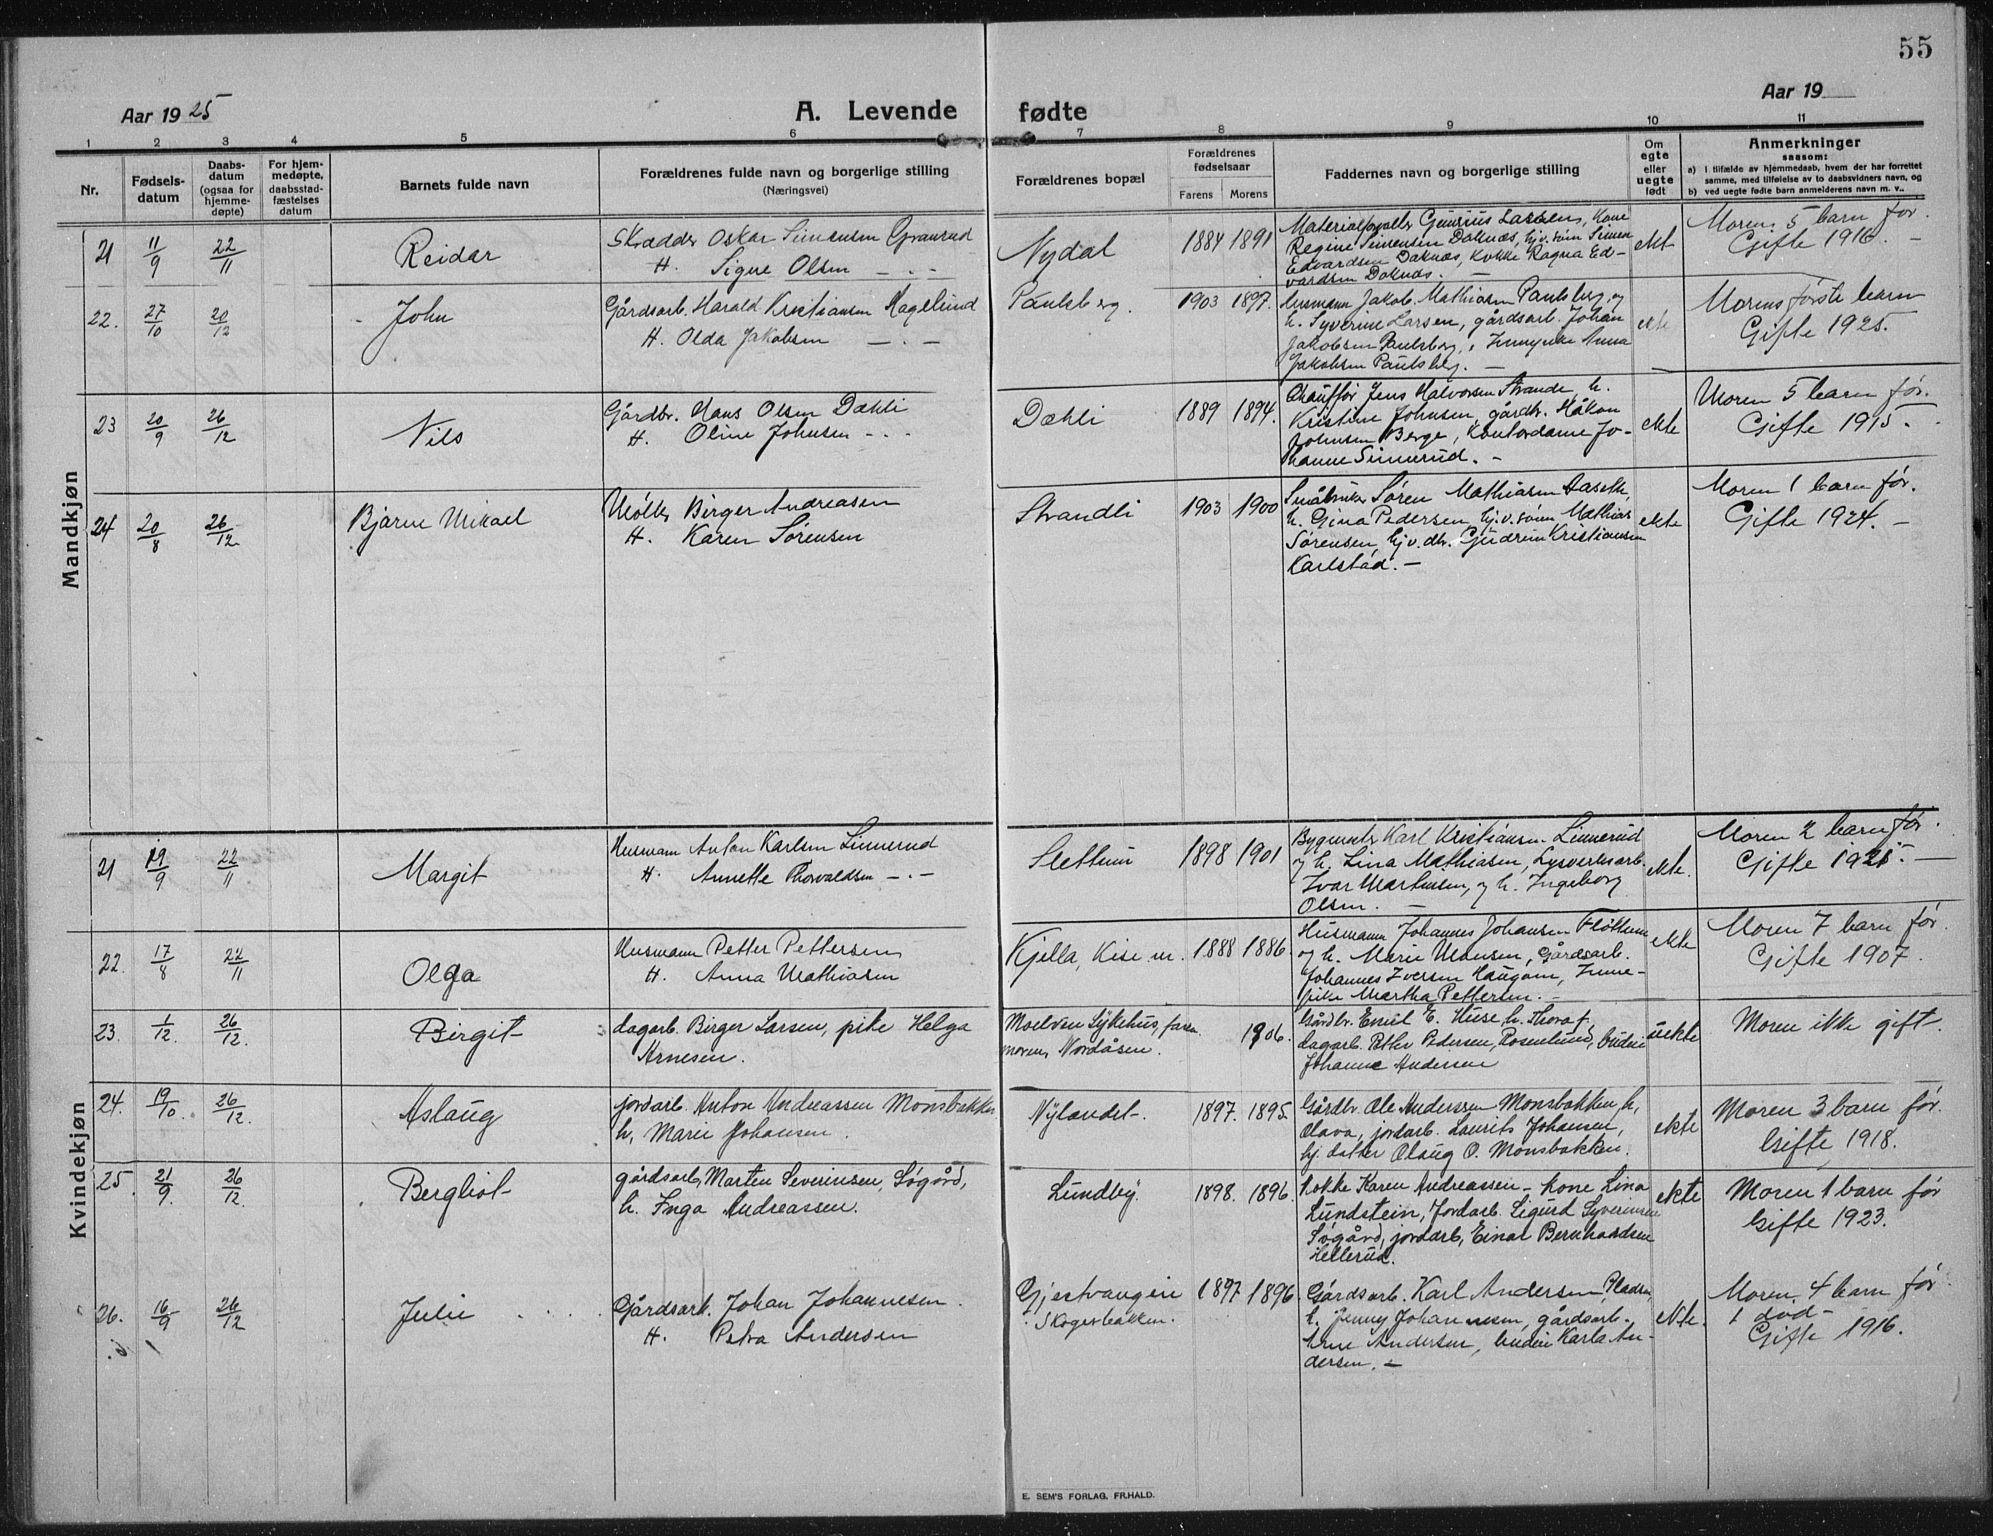 55
Aar 1925
A. Levende fødte
Aar 19
1 2 3 4 5 6 7 8 9 10 11
Nr.
Fødsels-
datum
Daabs-
datum
(ogsaa for
hjemme-
døpte)
For hjem-
medøpte,
daabsstad-
fæstelses
datum
Barnets fulde navn
Forældrenes fulde navn og borgerlige stilling
(Næringsvei)
Forældrenes bopæl
Forældrenes
fødselsaar
Farens Morens
Faddernes navn og borgerlige stilling
Om
egte
eller
uegte
født
Anmerkninger
saasom:
a) I tilfælde av hjemmedaab, hvem der har forrettet
samme, med tilføielse av to daabsvidners navn, og
b) ved uegte fødte barn anmelderens navn m. v..
Mandkjøn
21 11/9 22/11 Reidar
Skrædder Oskar Simensen Granrud
H. Signe Olsen — „ —
Nydal 1884 1891
Lassen, Kone
Regine Simensen Døknæs, hj.v. søn Simen
Edvardsen Døknæs, Kokke Ragna Ed-
vardsen Døknæs. —
ekt
Moren 5 barn før.
Gifte 1916. —
22. 27/10 20/12 John
Gårdsarb. Harald Kristiansen Hagelund
H. Olda Jakobsen — „ —
Paulsberg. 1903 1897.
Husmann Jakob Mathiasen Paulsberg og
h. Syverine Larsen, gårdsarb. Johan
Jakobsen Paulsberg, Anna
Jakobsen Paulsberg. —
ekte
Morens første barn
Gifte 1925.
23 20/9 26/12 Nils
Gårdbr. Hans Olsen Dæhli
H. Oline Johnsen — „ —
Dæhli 1889 1894.
Chauffør Jens Halvorsen Strande, h.
Kristine Johnsen, gårdbr. Håkon
Johnsen Berge, Kontordame Jo-
hanne Simerud. —
ekte
Moren 5 barn før.
Gifte 1915.
24 20/8 26/12 Bjarne Mikael
Møller Birger Andreasen
H. Karen Sørensen
Strandli 1903 1900
Småbruker Søren Mathiasen Aaseth,
h. Gina Pedersen, hj.v. søn Mathias
Sørensen, hj.v. dtr. Gudrun Kristiansen
Karlstad. —
ekte
Moren 1 barn før.
Gifte 1924. —
Kvindekjøn
21 19/9 22/11 Margit
Husmann Anton Karlsen Linnerud
H. Annette Thorvaldsen — „ —
Slettum 1898 1901
Bygmester Karl Kristiansen Linnerud
og h. Lina Mathiasen, Lysverksarb.
Ivar Martinsen, og h. Ingeborg
Olsen. —
ekte.
Moren 2 barn før.
Gifte 1921. —
22. 17/8 22/11 Olga
Husmann Petter Pettersen
H. Anna Mathiasen
Kjella, Kise m. 1888 1886.
Husmann Johannes Johansen Fløttum
og h. Marie Monsen, Gårdsarb.
Johannes Iversen Haugom, Inne-
pike Martha Pettersen. —
ekte
Moren 7 barn før
Gifte 1907.
23. 1/12. 26/12. Birgit
dagarb. Birger Larsen, pike Helga
Arnesen.
Moelven Sykehus, faren
moren, Nordåsen. 1906.
Gårdbr. Emil E. Huse h. Thora f,
dagarb. Petter Pedersen, Rosenlund, budeie
Johanne Andersen
uekte
Moren ikke gift.
24. 19/10. 26/12. Aslaug
jordarb. Anton Andreassen Monsbakken
h. Marie Johansen.
Nylandet. 1897. 1895.
Gårdbr. Ole Anderssen Monsbakken, h.
Olava, jordarb. Laurits Johansen,
hj. datter Olaug O. Monsbakken.
ekte
Moren 3 barn før.
Gifte 1918.
25. 21/9. 26/12. Bergliot
gårdsarb. Marten Severinsen, Søgård,
h. Inga Andreassen.
Lundby. 1898. 1896.
Kokke Karen Andreassen – Kone Lina
Lundstein, Jordarb. Sigurd Syverinsen
Søgård, jordarb, Einar Bernhardsen
Hellerud.
ekte
Moren 1 barn før
Gifte 1923.
26. 16/9 26/12 Julie
Gårdsarb. Johan Johannesen.
H. Petra Andersen
Gjestvangen
Skogerbakken. 1897 1896.
Gårdsarb. Karl Andersen Pladsen
h. Jenny Johannesen, gårdsarb.
Arne Andersen, budeie Karla An-
dersen. —
ekte.
Moren 4 barn før
1 død —
Gifte 1916.
E. SEM'S FORLAG, FR.HALD.